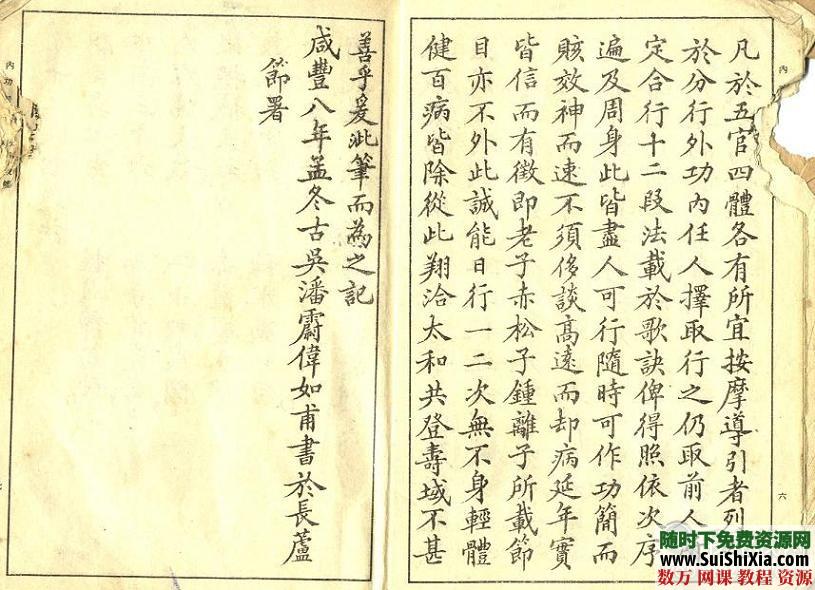 內
六
凡於五官四體各有所宜按摩導引者列
於分行外功內任人擇取行之仍取前人
定合行十二段法載於歌訣俾得照依次序
遍及周身此皆盡人可行隨時可作功簡而
賅效神而速不須侈談高遠而却病延年實
皆信而有徵即老子赤松子鍾離子所載節
目亦不外此誠能日行一二次無不身輕體
健百病皆除從此翔洽太和共登壽域不甚
善乎爰泚筆而為之記
咸豐八年孟冬古吳潘霨偉如甫書於長蘆
節署
內功
随时下免费资源网
www.SuiShiXia.com
数万 网课 教程 资源